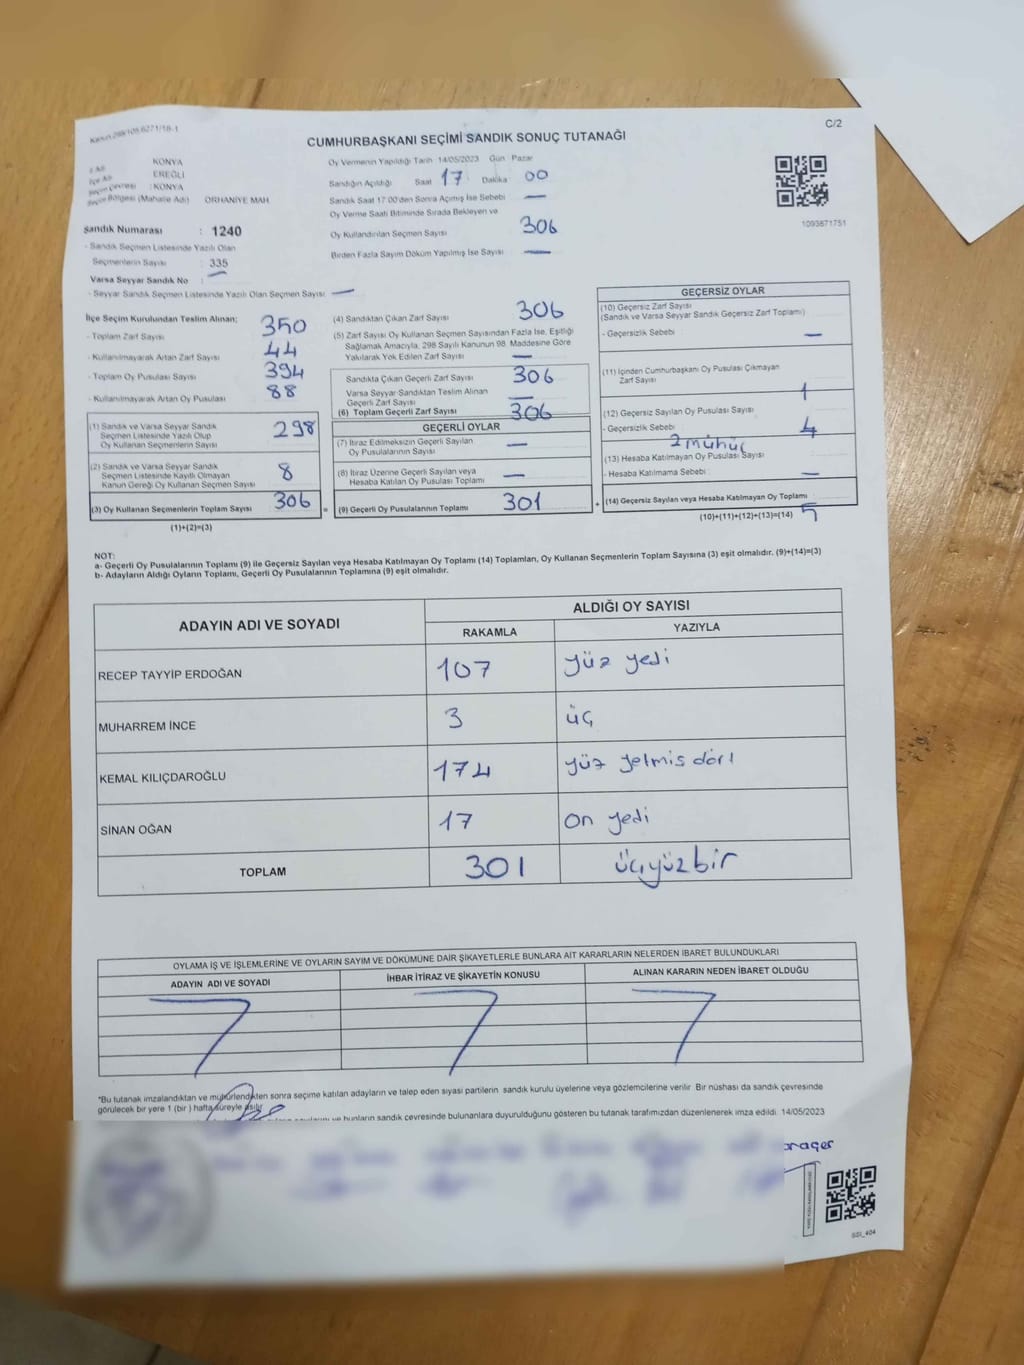 C/2
CUMHURBAŞKANI SEÇİMİ SANDIK SONUÇ TUTANAĞI
KONYA
EREĞLİ
Seçim Çevresi : KONYA
Seçim Bölgesi (Mahalle Adı) ORHANİYE MAH.
Sandık Numarası : 1240
- Sandık Seçmen Listesinde Yazılı Olan
Seçmenlerin Sayısı : 335
Varsa Seyyar Sandık No : —
- Seyyar Sandık Seçmen Listesinde Yazılı Olan Seçmen Sayısı : —
Oy Vermenin Yapıldığı Tarih 14/05/2023 Gün Pazar
Sandığın Açıldığı Saat 17 Dakika 00
Sandık Saat 17:00'den Sonra Açılmış İse Sebebi —
Oy Verme Saati Bitiminde Sırada Bekleyen ve
Oy Kullandırılan Seçmen Sayısı 306
Birden Fazla Sayım Döküm Yapılmış İse Sayısı —
1093671751
İlçe Seçim Kurulundan Teslim Alınan;
- Toplam Zarf Sayısı 350
- Kullanılmayarak Artan Zarf Sayısı 44
- Toplam Oy Pusulası Sayısı 394
- Kullanılmayarak Artan Oy Pusulası 88
(1) Sandık ve Varsa Seyyar Sandık
Seçmen Listesinde Yazılı Olup
Oy Kullanan Seçmenlerin Sayısı 298
(2) Sandık ve Varsa Seyyar Sandık
Seçmen Listesinde Kayıtlı Olmayan
Kanun Gereği Oy Kullanan Seçmen Sayısı 8
(3) Oy Kullanan Seçmenlerin Toplam Sayısı 306
(1)+(2)=(3)
(4) Sandıktan Çıkan Zarf Sayısı 306
(5) Zarf Sayısı Oy Kullanan Seçmen Sayısından Fazla İse, Eşitliği
Sağlamak Amacıyla, 298 Sayılı Kanunun 98. Maddesine Göre
Yakılarak Yok Edilen Zarf Sayısı —
Sandıkta Çıkan Geçerli Zarf Sayısı 306
Varsa Seyyar Sandıktan Teslim Alınan
Geçerli Zarf Sayısı —
(6) Toplam Geçerli Zarf Sayısı 306
GEÇERLİ OYLAR
(7) İtiraz Edilmeksizin Geçerli Sayılan
Oy Pusulalarının Sayısı —
(8) İtiraz Üzerine Geçerli Sayılan veya
Hesaba Katılan Oy Pusulası Toplamı —
= (9) Geçerli Oy Pusulalarının Toplamı 301
GEÇERSİZ OYLAR
(10) Geçersiz Zarf Sayısı
(Sandık ve Varsa Seyyar Sandık Geçersiz Zarf Toplamı)
- Geçersizlik Sebebi : —
(11) İçinden Cumhurbaşkanı Oy Pusulası Çıkmayan
Zarf Sayısı 1
(12) Geçersiz Sayılan Oy Pusulası Sayısı
- Geçersizlik Sebebi : 4
2 mühür
(13) Hesaba Katılmayan Oy Pusulası Sayısı
- Hesaba Katılmama Sebebi : —
+ (14) Geçersiz Sayılan veya Hesaba Katılmayan Oy Toplamı
(10)+(11)+(12)+(13)=(14) 5
NOT:
a- Geçerli Oy Pusulalarının Toplamı (9) ile Geçersiz Sayılan veya Hesaba Katılmayan Oy Toplamı (14) Toplamları, Oy Kullanan Seçmenlerin Toplam Sayısına (3) eşit olmalıdır. (9)+(14)=(3)
b- Adayların Aldığı Oyların Toplamı, Geçerli Oy Pusulalarının Toplamına (9) eşit olmalıdır.
ADAYIN ADI VE SOYADI ALDIĞI OY SAYISI
RAKAMLA YAZIYLA
RECEP TAYYİP ERDOĞAN 107 yüz yedi
MUHARREM İNCE 3 üç
KEMAL KILIÇDAROĞLU 174 yüz yelmis dört
SİNAN OĞAN 17 on yedi
TOPLAM 301 üçyüzbir
OYLAMA İŞ VE İŞLEMLERİNE VE OYLARIN SAYIM VE DÖKÜMÜNE DAİR ŞİKAYETLERLE BUNLARA AİT KARARLARIN NELERDEN İBARET BULUNDUKLARI
ADAYIN ADI VE SOYADI İHBAR İTİRAZ VE ŞİKAYETİN KONUSU ALINAN KARARIN NEDEN İBARET OLDUĞU
*Bu tutanak imzalandıktan ve mühürlendikten sonra seçime katılan adayların ve talep eden siyasi partilerin sandık kurulu üyelerine veya gözlemcilerine verilir. Bir nüshası da sandık çevresinde
görülecek bir yere 1 (bir) hafta süreyle asılır.
ve bunların sandık çevresinde bulunanlara duyurulduğunu gösteren bu tutanak tarafımızdan düzenlenerek imza edildi. 14/05/2023
SSI_404